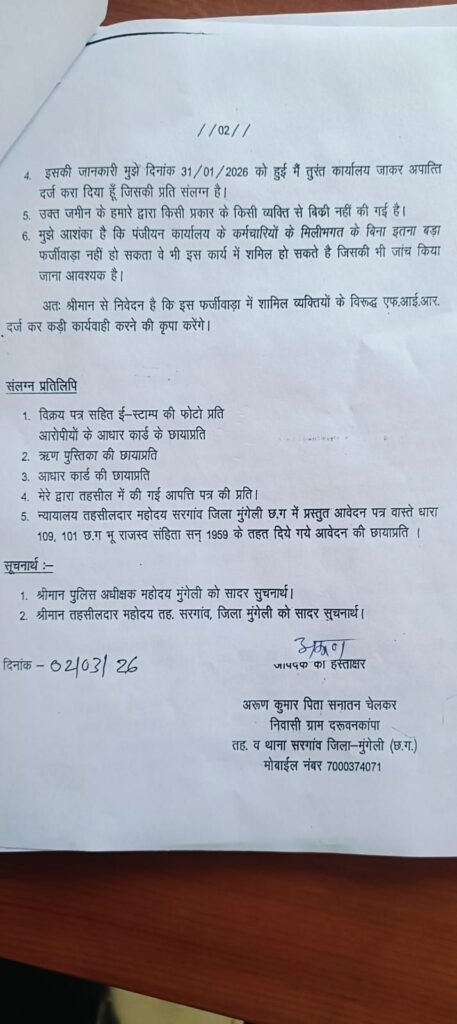 //02//
4. इसकी जानकारी मुझे दिनांक 31/01/2026 को हुई मैं तुरंत कार्यालय जाकर अपात्ति
दर्ज करा दिया हूँ जिसकी प्रति संलग्न है।
5. उक्त जमीन के हमारे द्वारा किसी प्रकार के किसी व्यक्ति से बिकी नहीं की गई है।
6. मुझे आशंका है कि पंजीयन कार्यालय के कर्मचारियों के मिलीभगत के बिना इतना बड़ा
फर्जीवाड़ा नहीं हो सकता वे भी इस कार्य में शमिल हो सकते है जिसकी भी जांच किया
जाना आवश्यक है।
अतः श्रीमान से निवेदन है कि इस फर्जीवाड़ा में शामिल व्यक्तियों के विरूद्ध एफ.आई.आर.
दर्ज कर कड़ी कार्यवाही करने की कृपा करेंगे।
संलग्न प्रतिलिपि
1. विक्रय पत्र सहित ई-स्टाम्प की फोटो प्रति
आरोपीयों के आधार कार्ड के छायाप्रति
2. ऋण पुस्तिका की छायाप्रति
3. आधार कार्ड की छायाप्रति
4. मेरे द्वारा तहसील में की गई आपत्ति पत्र की प्रति।
5. न्यायालय तहसीलदार महोदय सरगांव जिला मुंगेली छ.ग में प्रस्तुत आवेदन पत्र वास्ते धारा
109, 101 छ.ग भू राजस्व संहिता सन् 1959 के तहत दिये गये आवेदन की छायाप्रति ।
सूचनार्थ :–
1. श्रीमान पुलिस अधीक्षक महोदय मुंगेली को सादर सुचनार्थ।
2. श्रीमान तहसीलदार महोदय तह. सरगांव, जिला मुंगेली को सादर सुचनार्थ।
दिनांक – 02/03/26
अरूण
आवेदक का हस्ताक्षर
अरूण कुमार पिता सनातन चेलकर
निवासी ग्राम दरूवनकांपा
तह. व थाना सरगांव जिला–मुंगेली (छ.ग.)
मोबाईल नंबर 7000374071